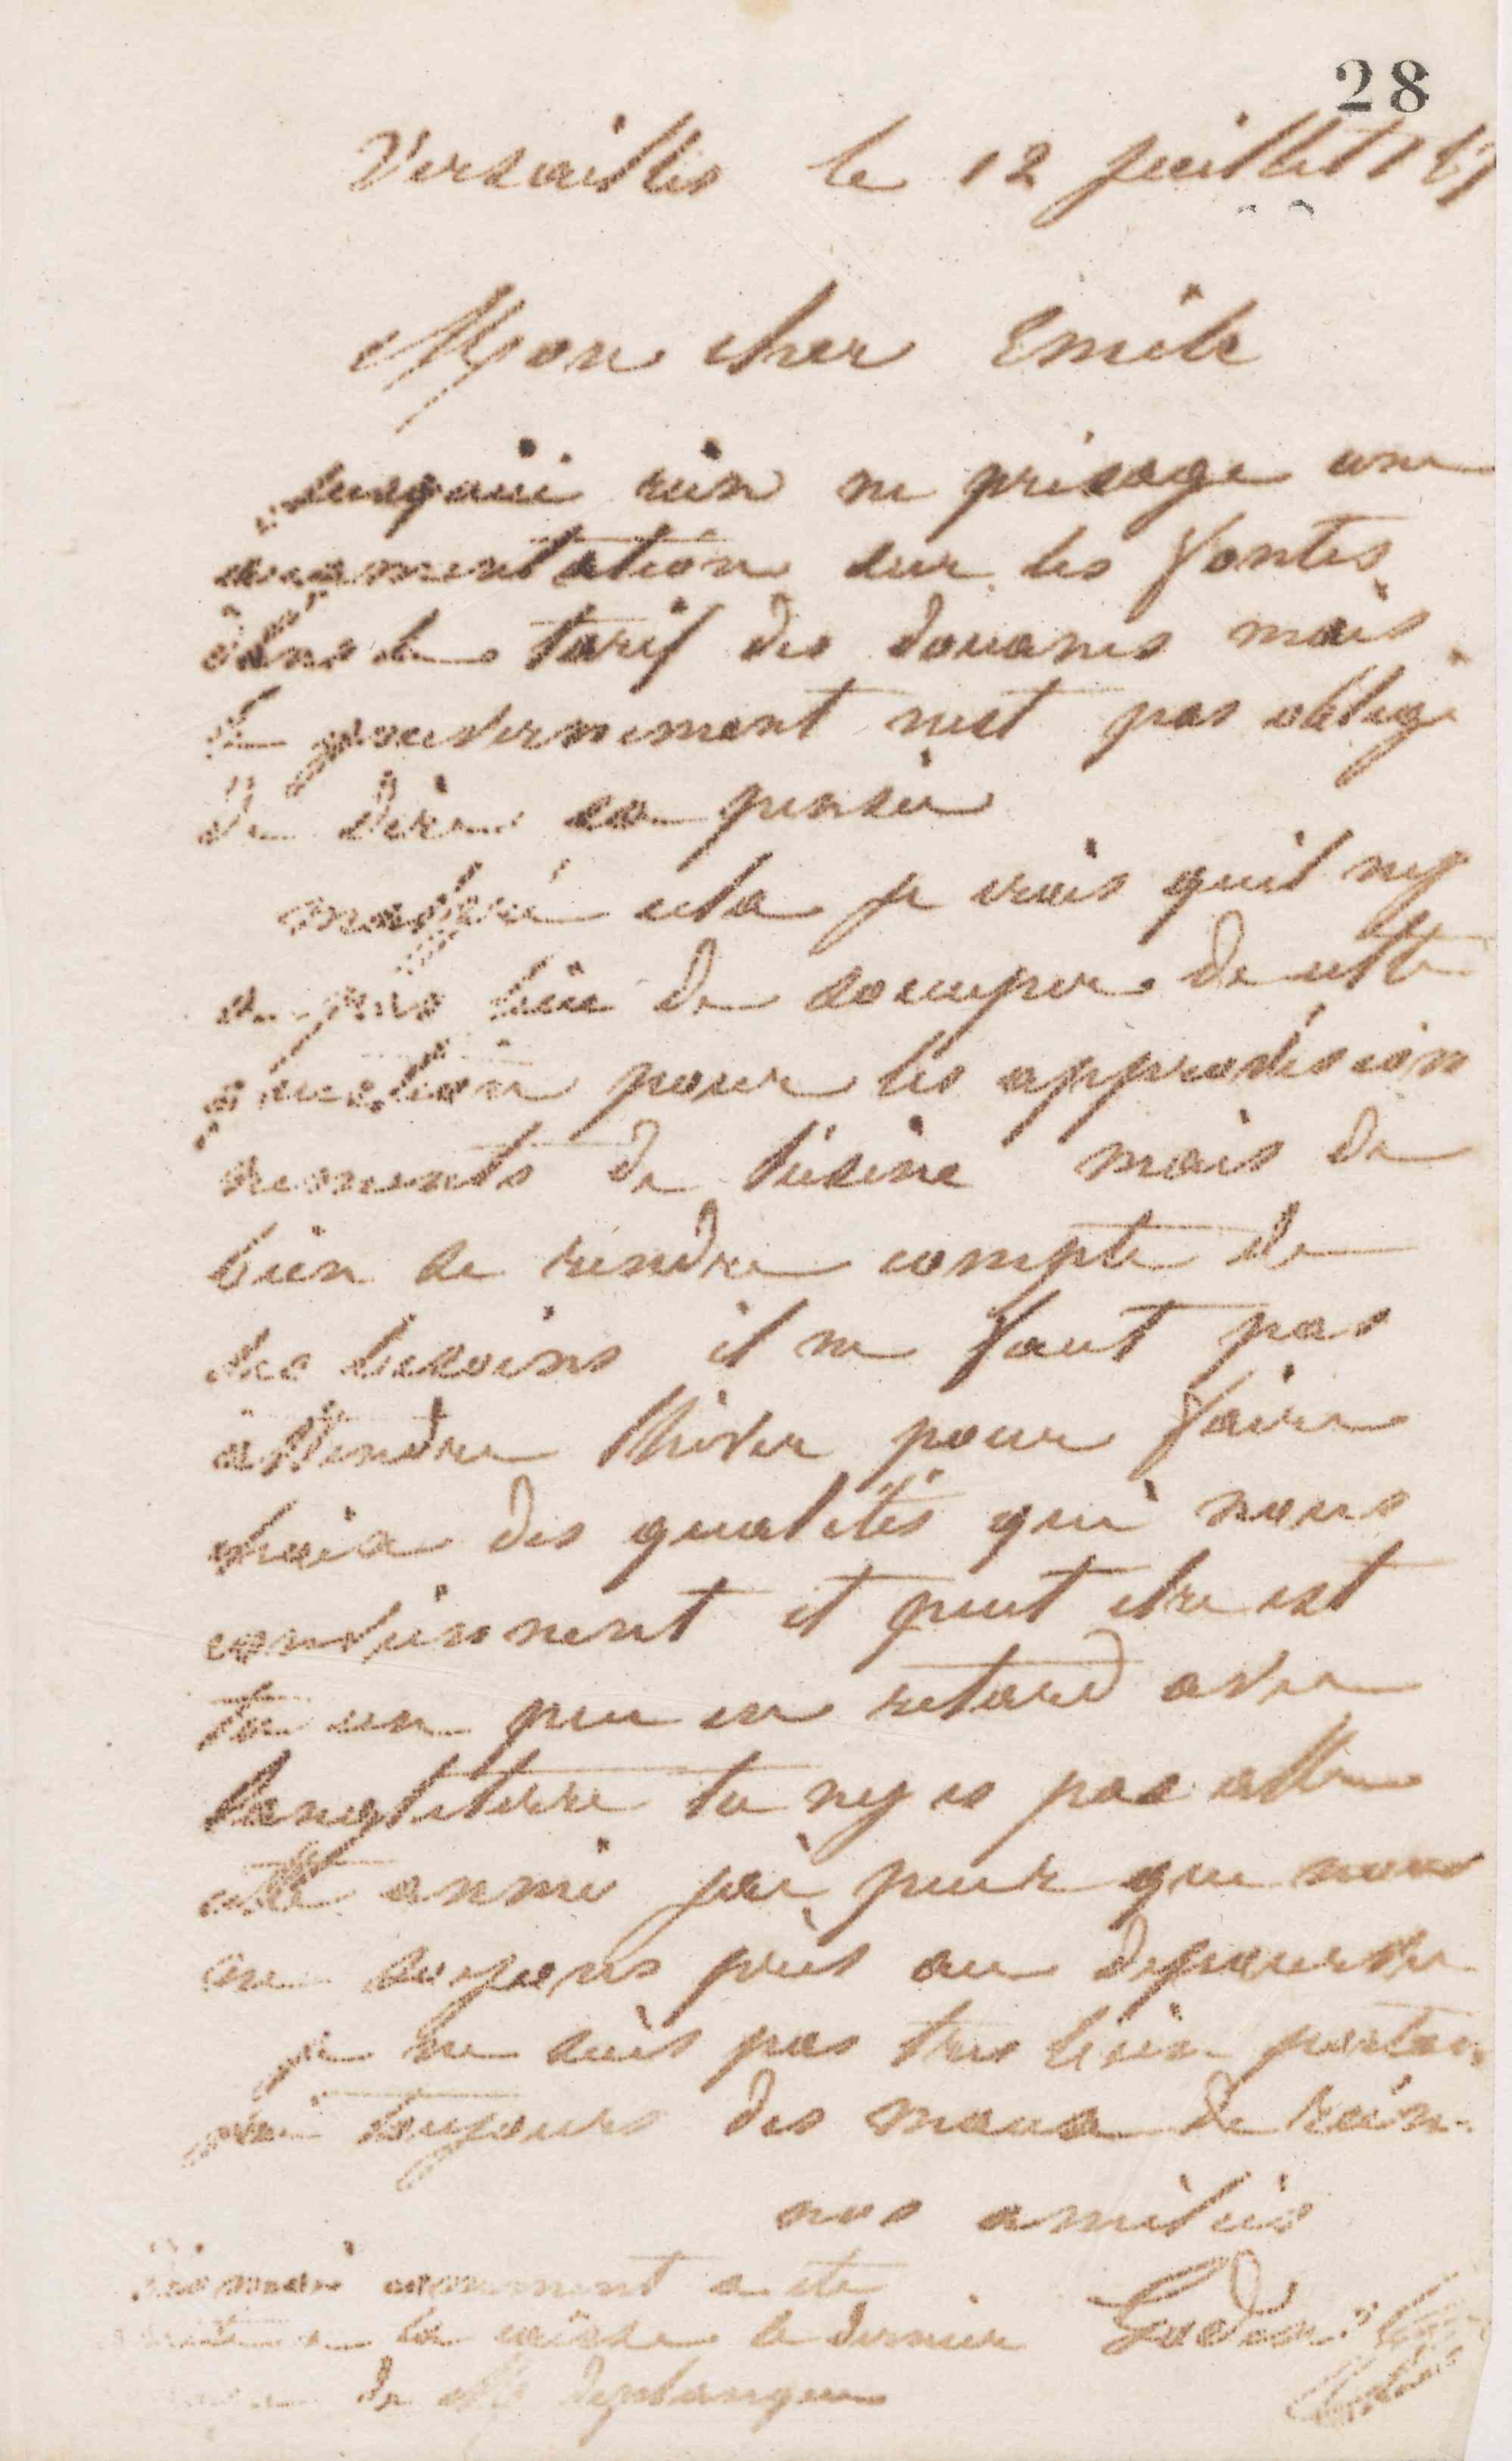 28
Versailles le 12 juillet 187
Mon cher Emile
jusquici rien ne présage une
augmentation sur les fontes
dans le tarif des douanes mais
le gouvernement nest pas obligé
de dire sa pensée
malgré cela je crois quil ny
a pas lieu de soccuper de cette
question pour les approvision
nements de lusine mais de
bien se rendre compte de
ses besoins il ne faut pas
attendre lhiver pour faire
choix des qualités qui nous
conviennent et peut etre est
tu un peu en retard avec
langleterre tu ny es pas allé
cette année jai peur que nous
ne soyons pris au dépourvu
je ne suis pas tres bien portan
jai toujours des maux de rein
nos amitiés
comment a été
la caisse le dernier Godin
de Mr deplanque